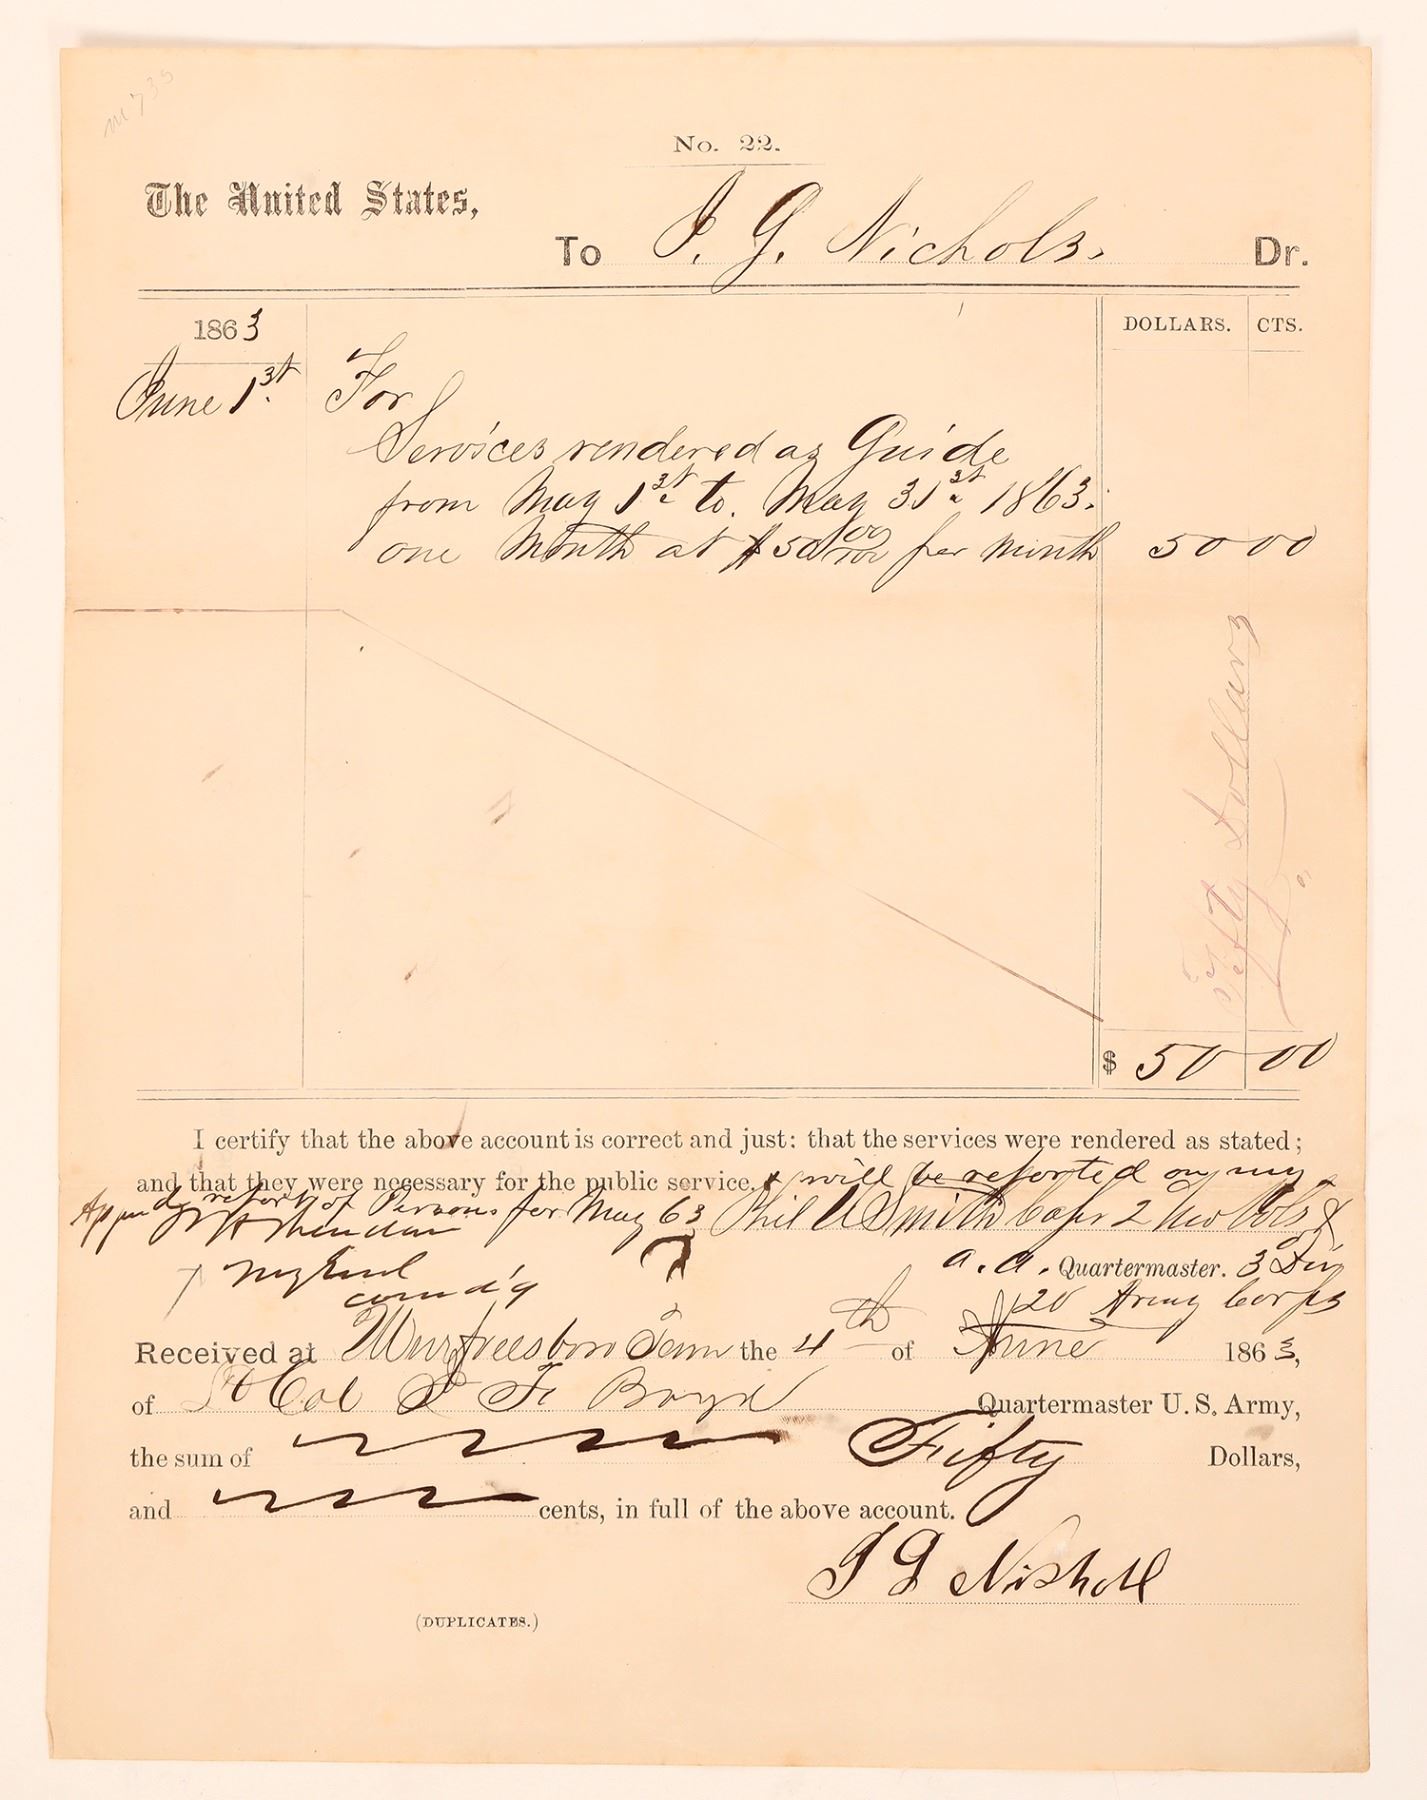 No. 22.
The United States,
To J. G. Nichols. Dr.
1863 DOLLARS. CTS.
June 1st. For
Services rendered as Guide
from May 1st to. May 31st 1863.
one Month at $50 00/100 per Month 50 00
Fifty Dollars
$ 50 00
I certify that the above account is correct and just: that the services were rendered as stated;
and that they were necessary for the public service. & will be reported on my
report of Persons for May 63 Phil A Smith Capt 2 Mo Vols &
Approved
P H Sheridan
Maj Genl
comd'g
a. a. Quartermaster. 3d Div
20 Army Corps
Received at Murfreesboro Tenn the 4th of June 1863,
of Lt Col Boyd Quartermaster U. S. Army,
the sum of Fifty Dollars,
and cents, in full of the above account.
J G Nichols
(DUPLICATES.)